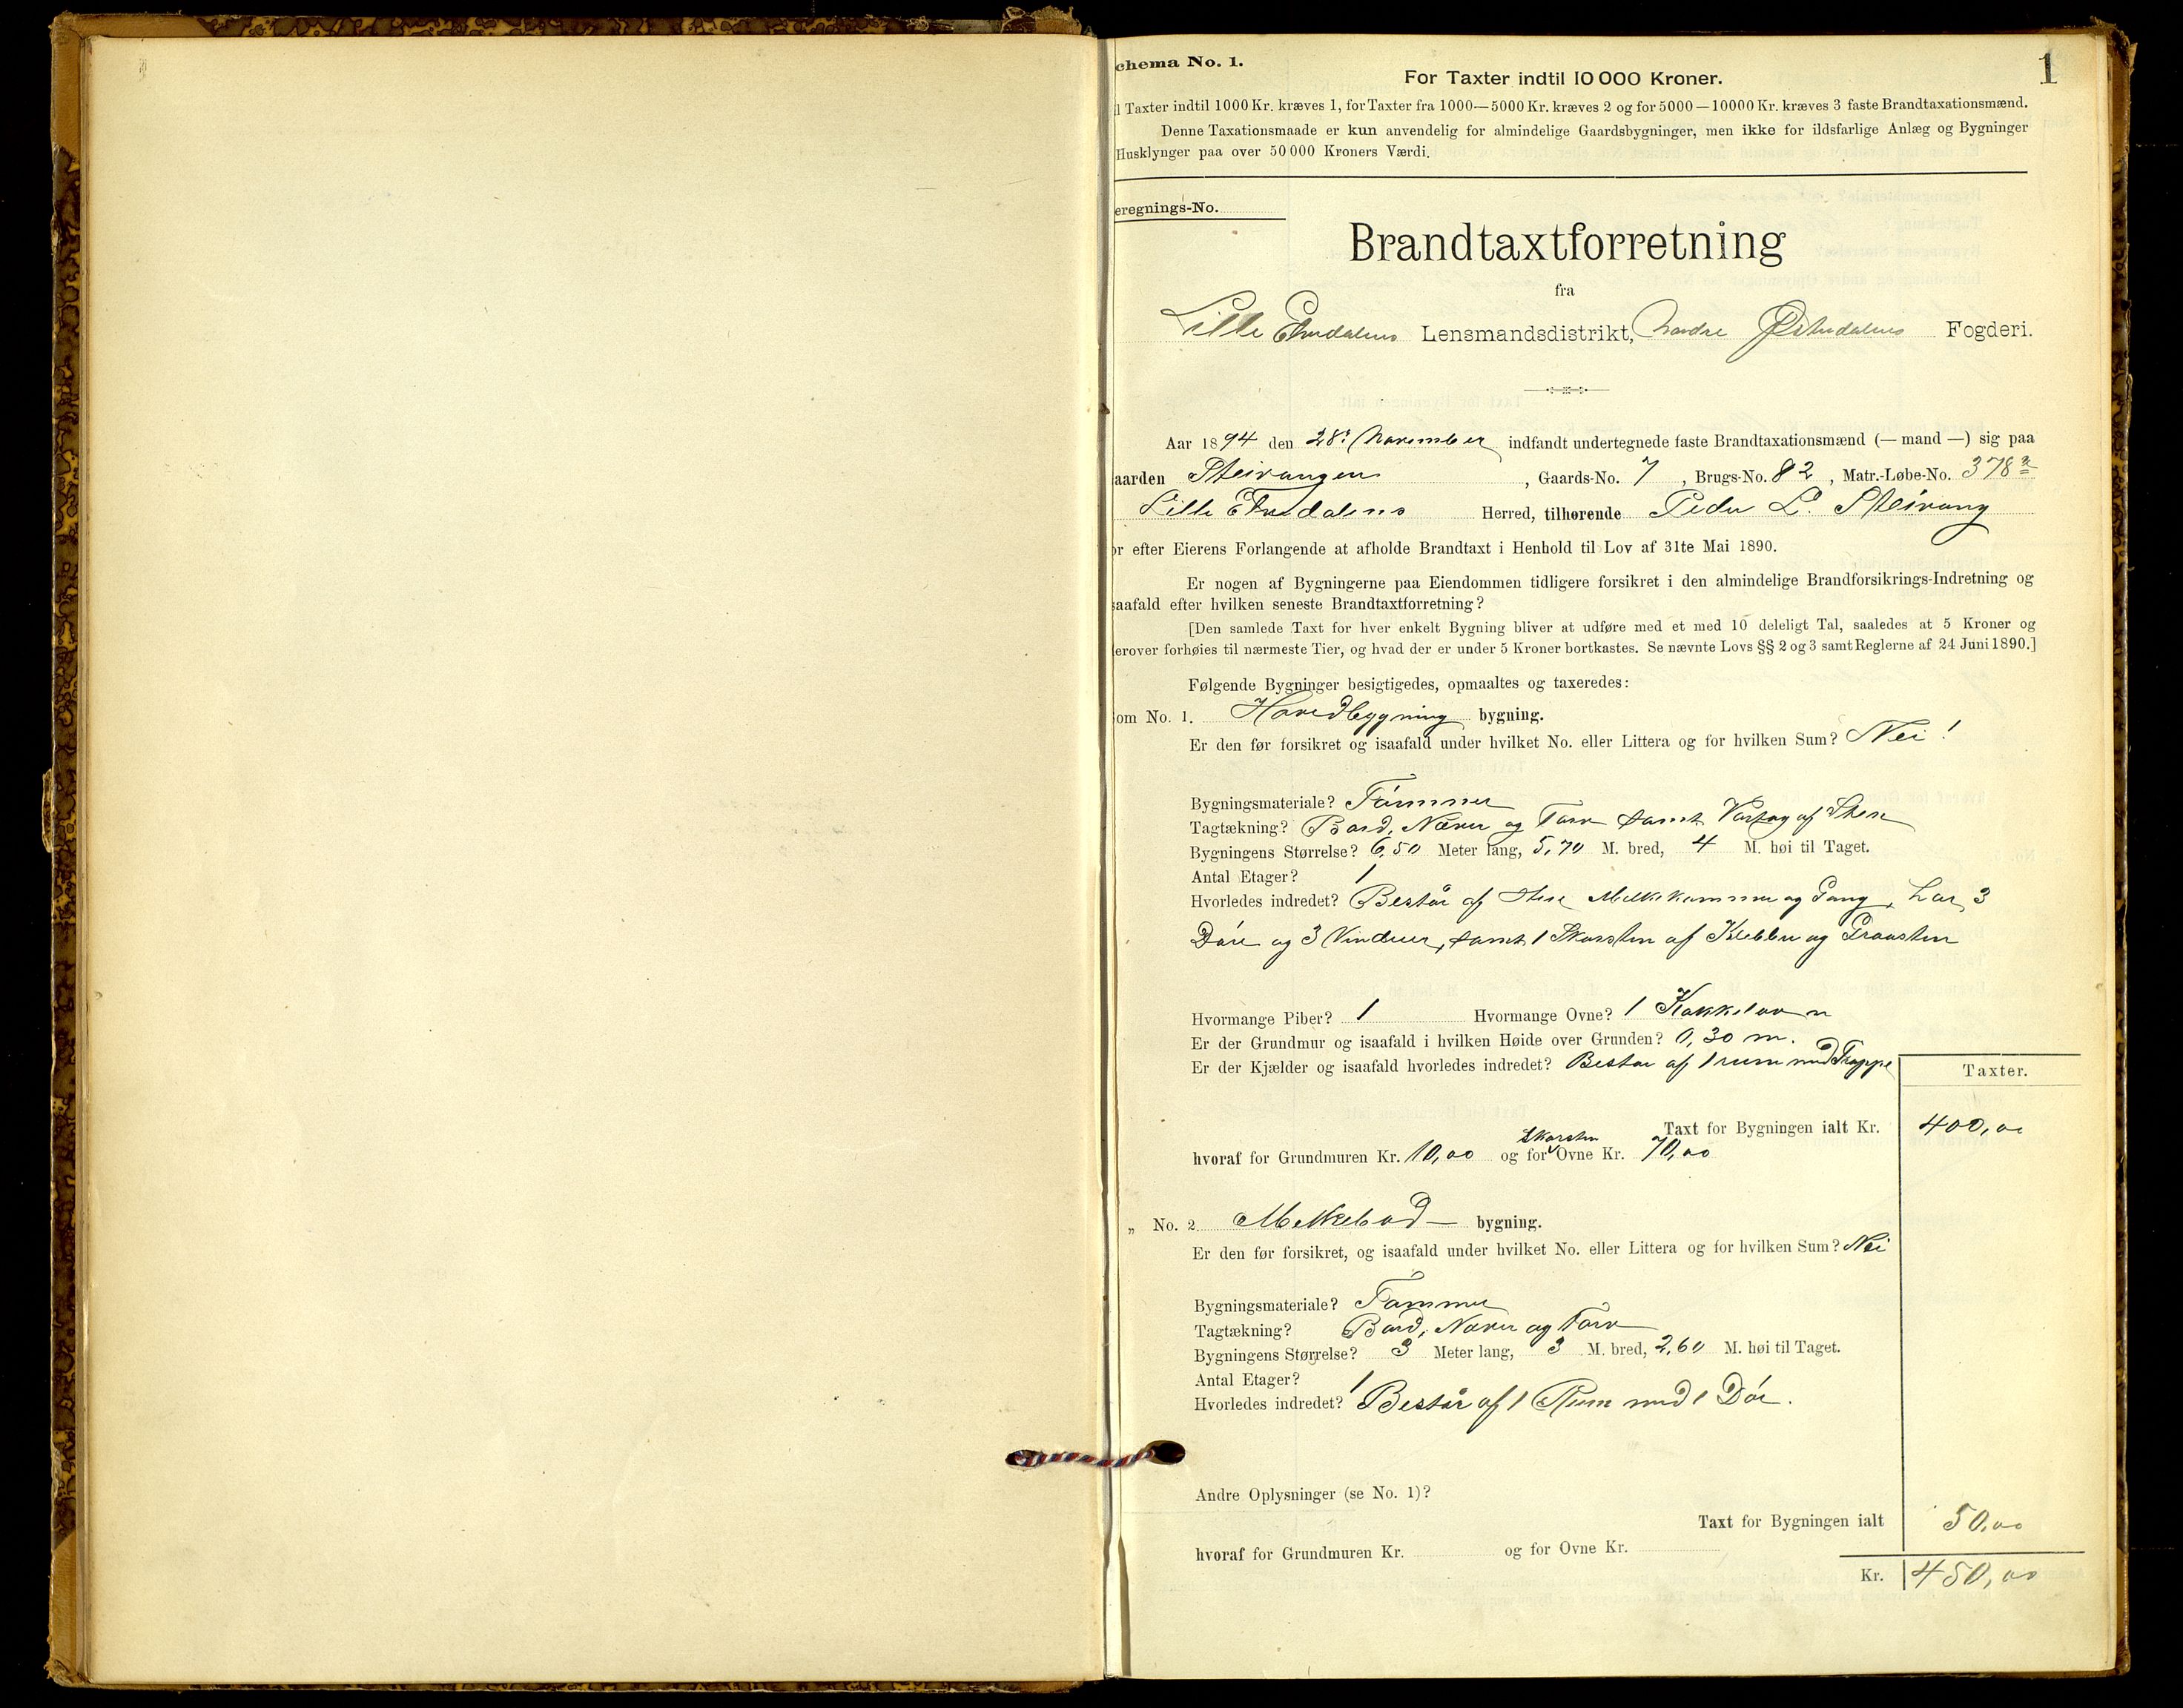 chema No. 1.
1
For Taxter indtil 10 000 Kroner.
l Taxter indtil 1000 Kr. kræves 1, for Taxter fra 1000—5000 Kr. kræves 2 og for 5000—10000 Kr. kræves 3 faste Brandtaxationsmænd.
Denne Taxationsmaade er kun anvendelig for almindelige Gaardsbygninger, men ikke for ildsfarlige Anlæg og Bygninger
Husklynger paa over 50 000 Kroners Værdi.
eregnings-No.
Brandtaxtforretning
fra
Lille Elvedalens Lensmandsdistrikt, Nordre Østerdalens Fogderi.
Aar 1894 den 28. November indfandt undertegnede faste Brandtaxationsmænd (— mand —) sig paa
aarden Steivangen, Gaards-No. 7, Brugs-No. 82, Matr.-Løbe-No. 378
Lille Elvedalens Herred, tilhørende Peder L. Steivang
or efter Eierens Forlangende at afholde Brandtaxt i Henhold til Lov af 31te Mai 1890.
Er nogen af Bygningerne paa Eiendommen tidligere forsikret i den almindelige Brandforsikrings-Indretning og
saafald efter hvilken seneste Brandtaxtforretning?
[Den samlede Taxt for hver enkelt Bygning bliver at udføre med et med 10 deleligt Tal, saaledes at 5 Kroner og
erover forhøies til nærmeste Tier, og hvad der er under 5 Kroner bortkastes. Se nævnte Lovs §§ 2 og 3 samt Reglerne af 24 Juni 1890.]
Følgende Bygninger besigtigedes, opmaaltes og taxeredes:
om No. 1. Hovedbygning bygning.
Er den før forsikret og isaafald under hvilket No. eller Littera og for hvilken Sum? Nei!
Bygningsmateriale? Tømmer
Tagtækning? Bord, Næver og Torv samt Vortag af Sten
Bygningens Størrelse? 6,50 Meter lang, 5,70 M. bred, 4 M. høi til Taget.
Antal Etager? 1
Hvorledes indredet? Består af Stue Melkekammer og Gang, har 3
Døre og 3 Vinduer, samt 1 Skorsten af Klebber og Graasten
Hvormange Piber? 1 Hvormange Ovne? 1 Kakkelovn
Er der Grundmur og isaafald i hvilken Høide over Grunden? 0,30 m.
Er der Kjælder og isaafald hvorledes indredet? Bestar af 1 rum med Trappe
Taxter.
Taxt for Bygningen ialt Kr. 400,00
hvoraf for Grundmuren Kr. 10,00 og for Skorsten Ovne Kr. 70,00
„ No. 2. Melkebod — bygning.
Er den før forsikret, og isaafald under hvilket No. eller Littera og for hvilken Sum? Nei
Bygningsmateriale? Tømmer
Tagtækning? Bord, Næver og Torv
Bygningens Størrelse? 3 Meter lang, 3 M. bred, 2,60 M. høi til Taget.
Antal Etager? 1
Hvorledes indredet? Består af 1 Rum med 1 Dør.
Andre Oplysninger (se No. 1)?
Taxt for Bygningen ialt 50,00
hvoraf for Grundmuren Kr. og for Ovne Kr.
Kr. 450,00